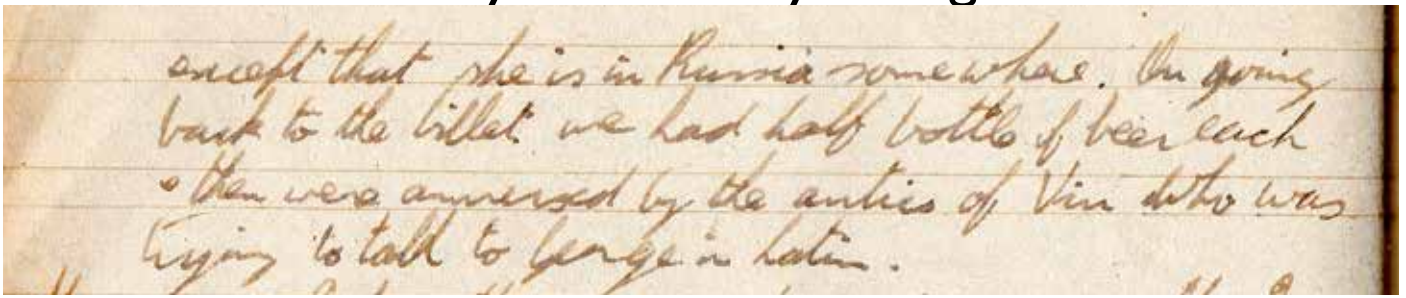 except that she is in Russia somewhere. On going
back to the billet we had half bottle of beer each
& then were ammused by the antics of Vin who was
trying to talk to George in Latin.